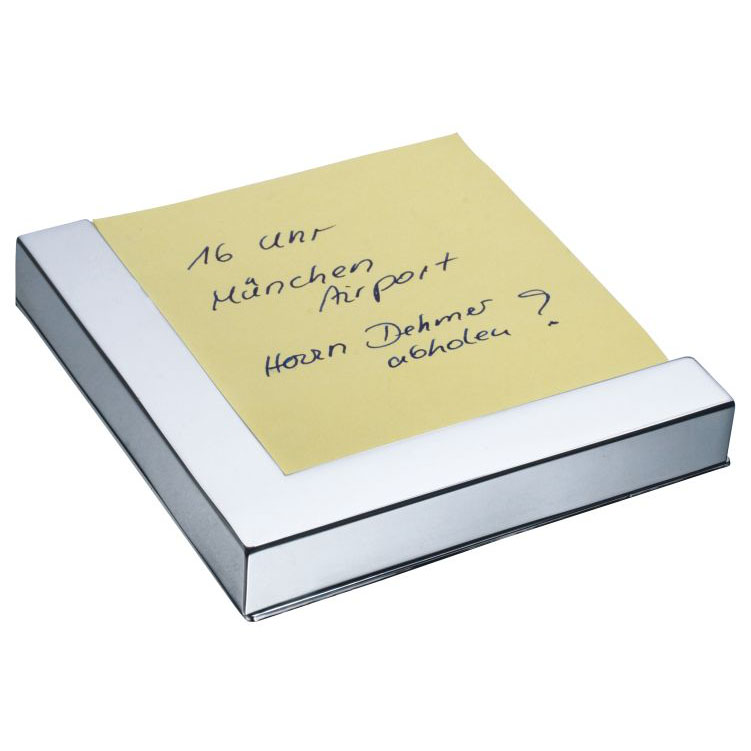 16 Uhr
München
Airport
Herrn Dehmer
abholen ?